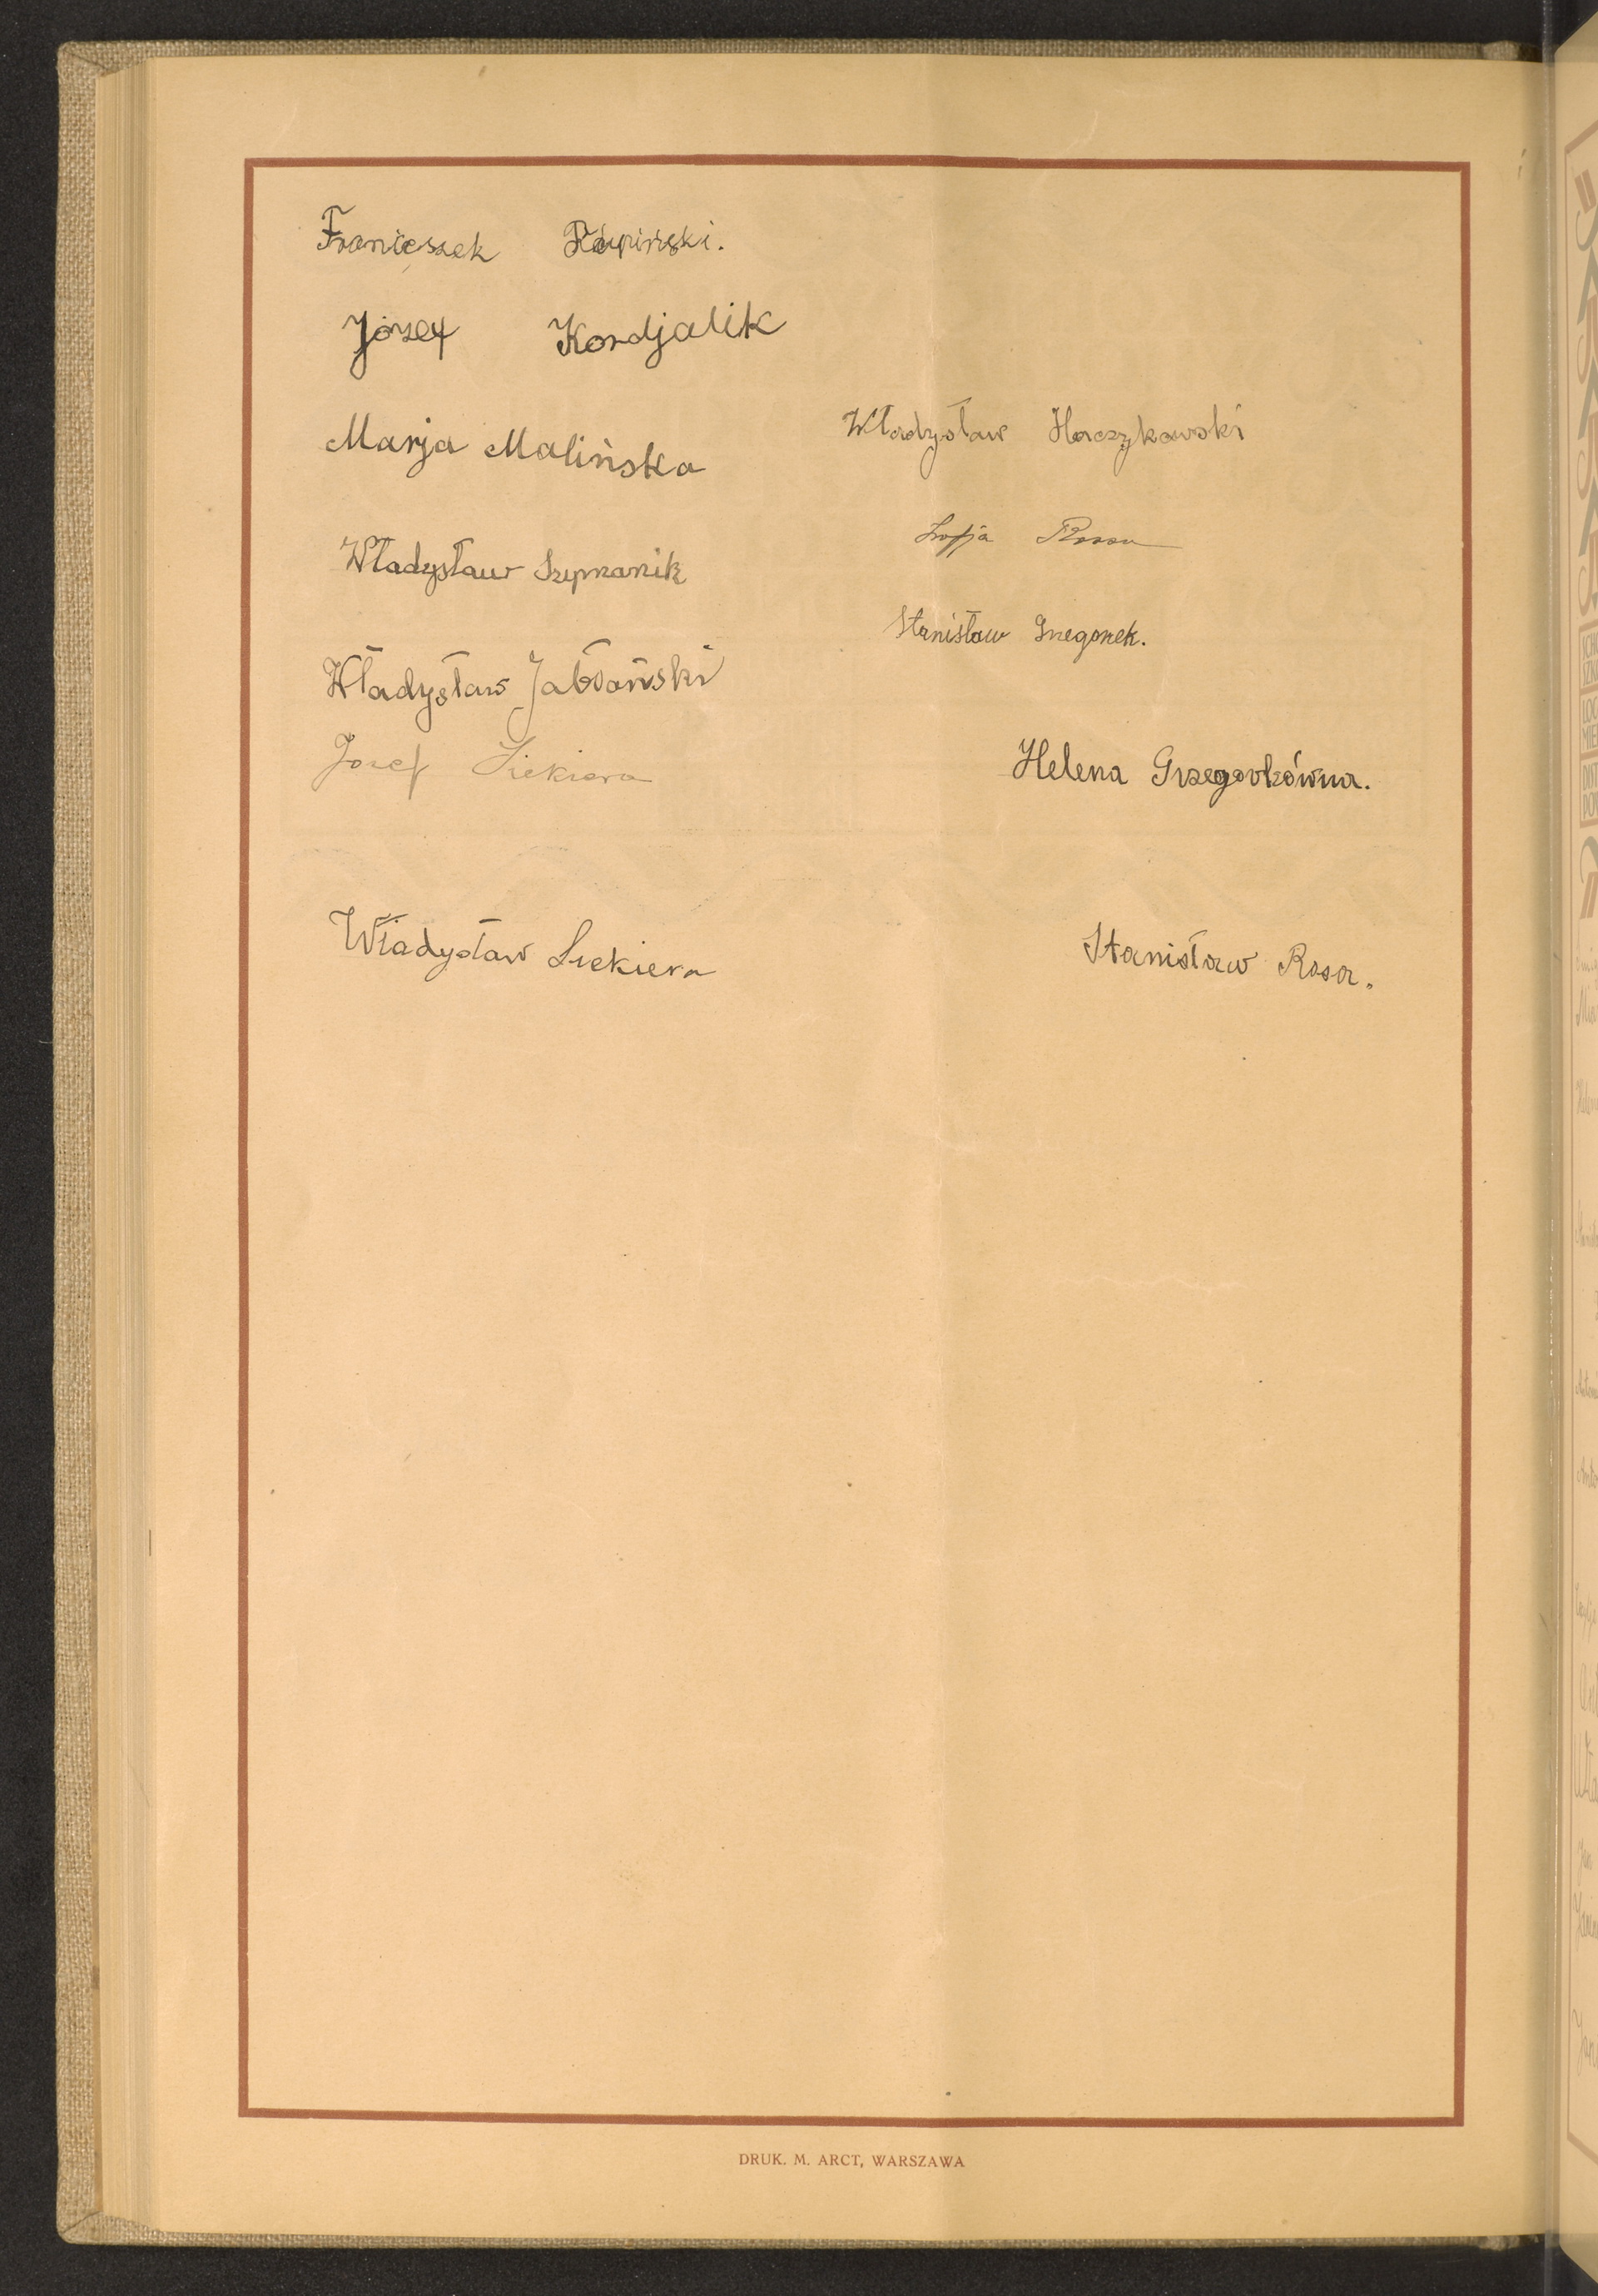 Franciszek Rzpiński.
Józef Kordjalik
Marja Malińska
Władysław Szymanik
Władysław Jabłoński
Jozef Siekiera
Władysław Siekiera
Władysław Haczykowski
Zofja Rosa
Stanisław Gregorek.
Helena Grzegorkówna.
Stanisław Rosa.
DRUK. M. ARCT, WARSZAWA